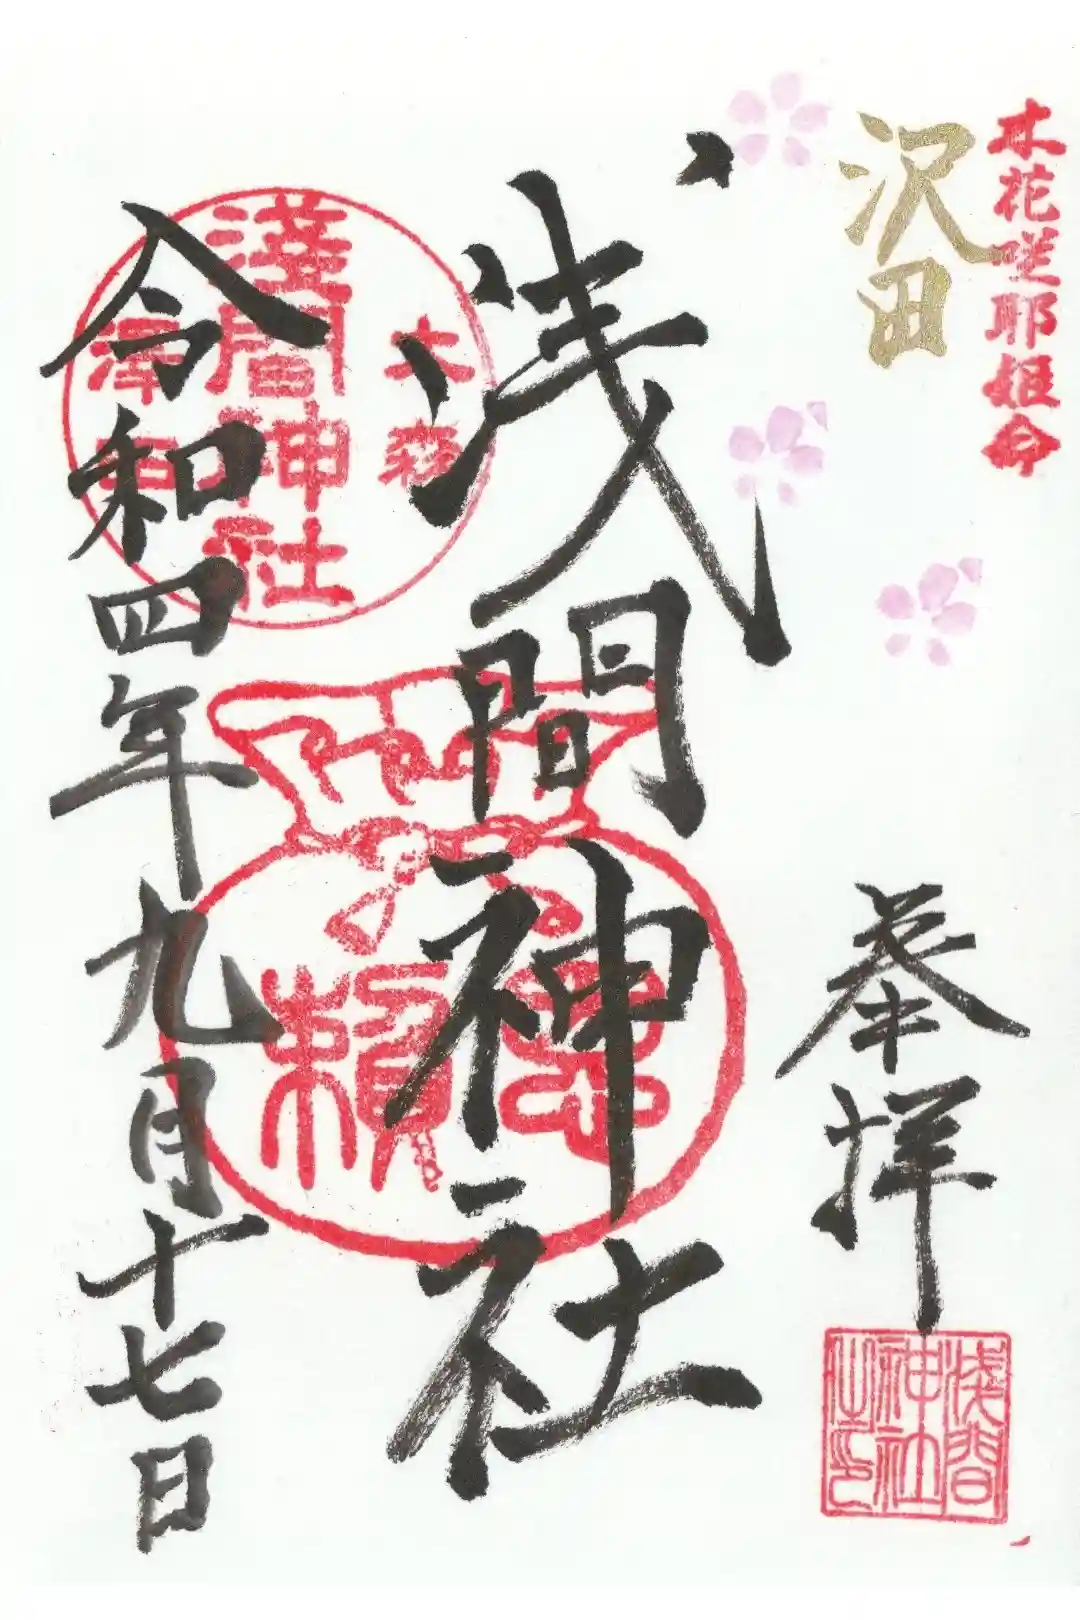 木花咲耶姫命
沢田
奉拝
浅間神社之印
浅間神社
大森
淺間神社
澤田
令和四年九月十七日